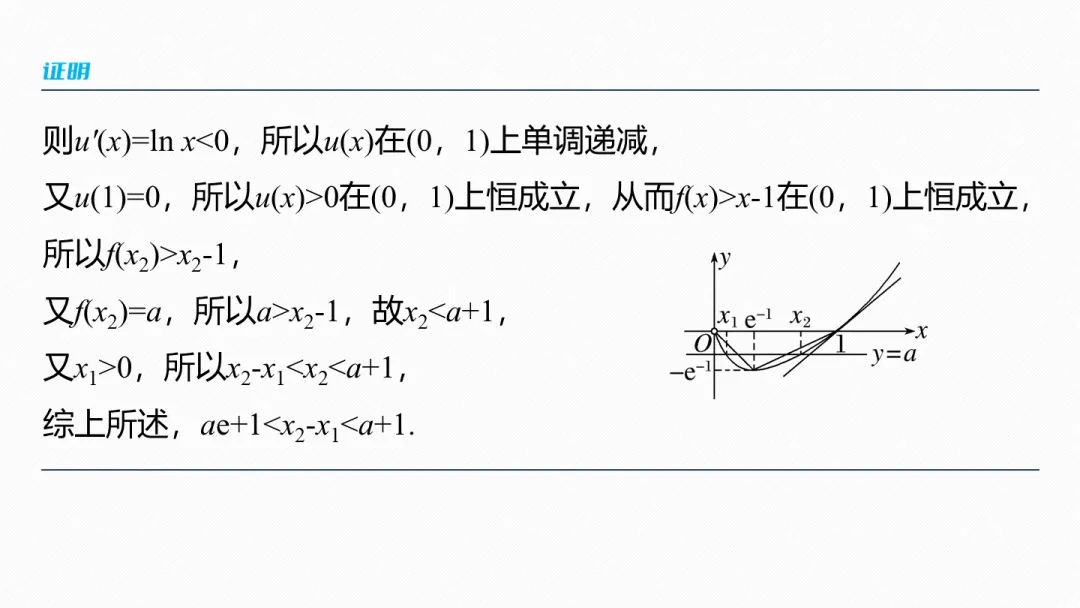 证明
则u′(x)=ln x<0，所以u(x)在(0，1)上单调递减，
又u(1)=0，所以u(x)>0在(0，1)上恒成立，从而f(x)>x-1在(0，1)上恒成立，
所以f(x₂)>x₂-1，
又f(x₂)=a，所以a>x₂-1，故x₂<a+1，
又x₁>0，所以x₂-x₁<x₂<a+1，
综上所述，ae+1<x₂-x₁<a+1.
y
x₁ e⁻¹ x₂
x
O
1
y=a
−e⁻¹